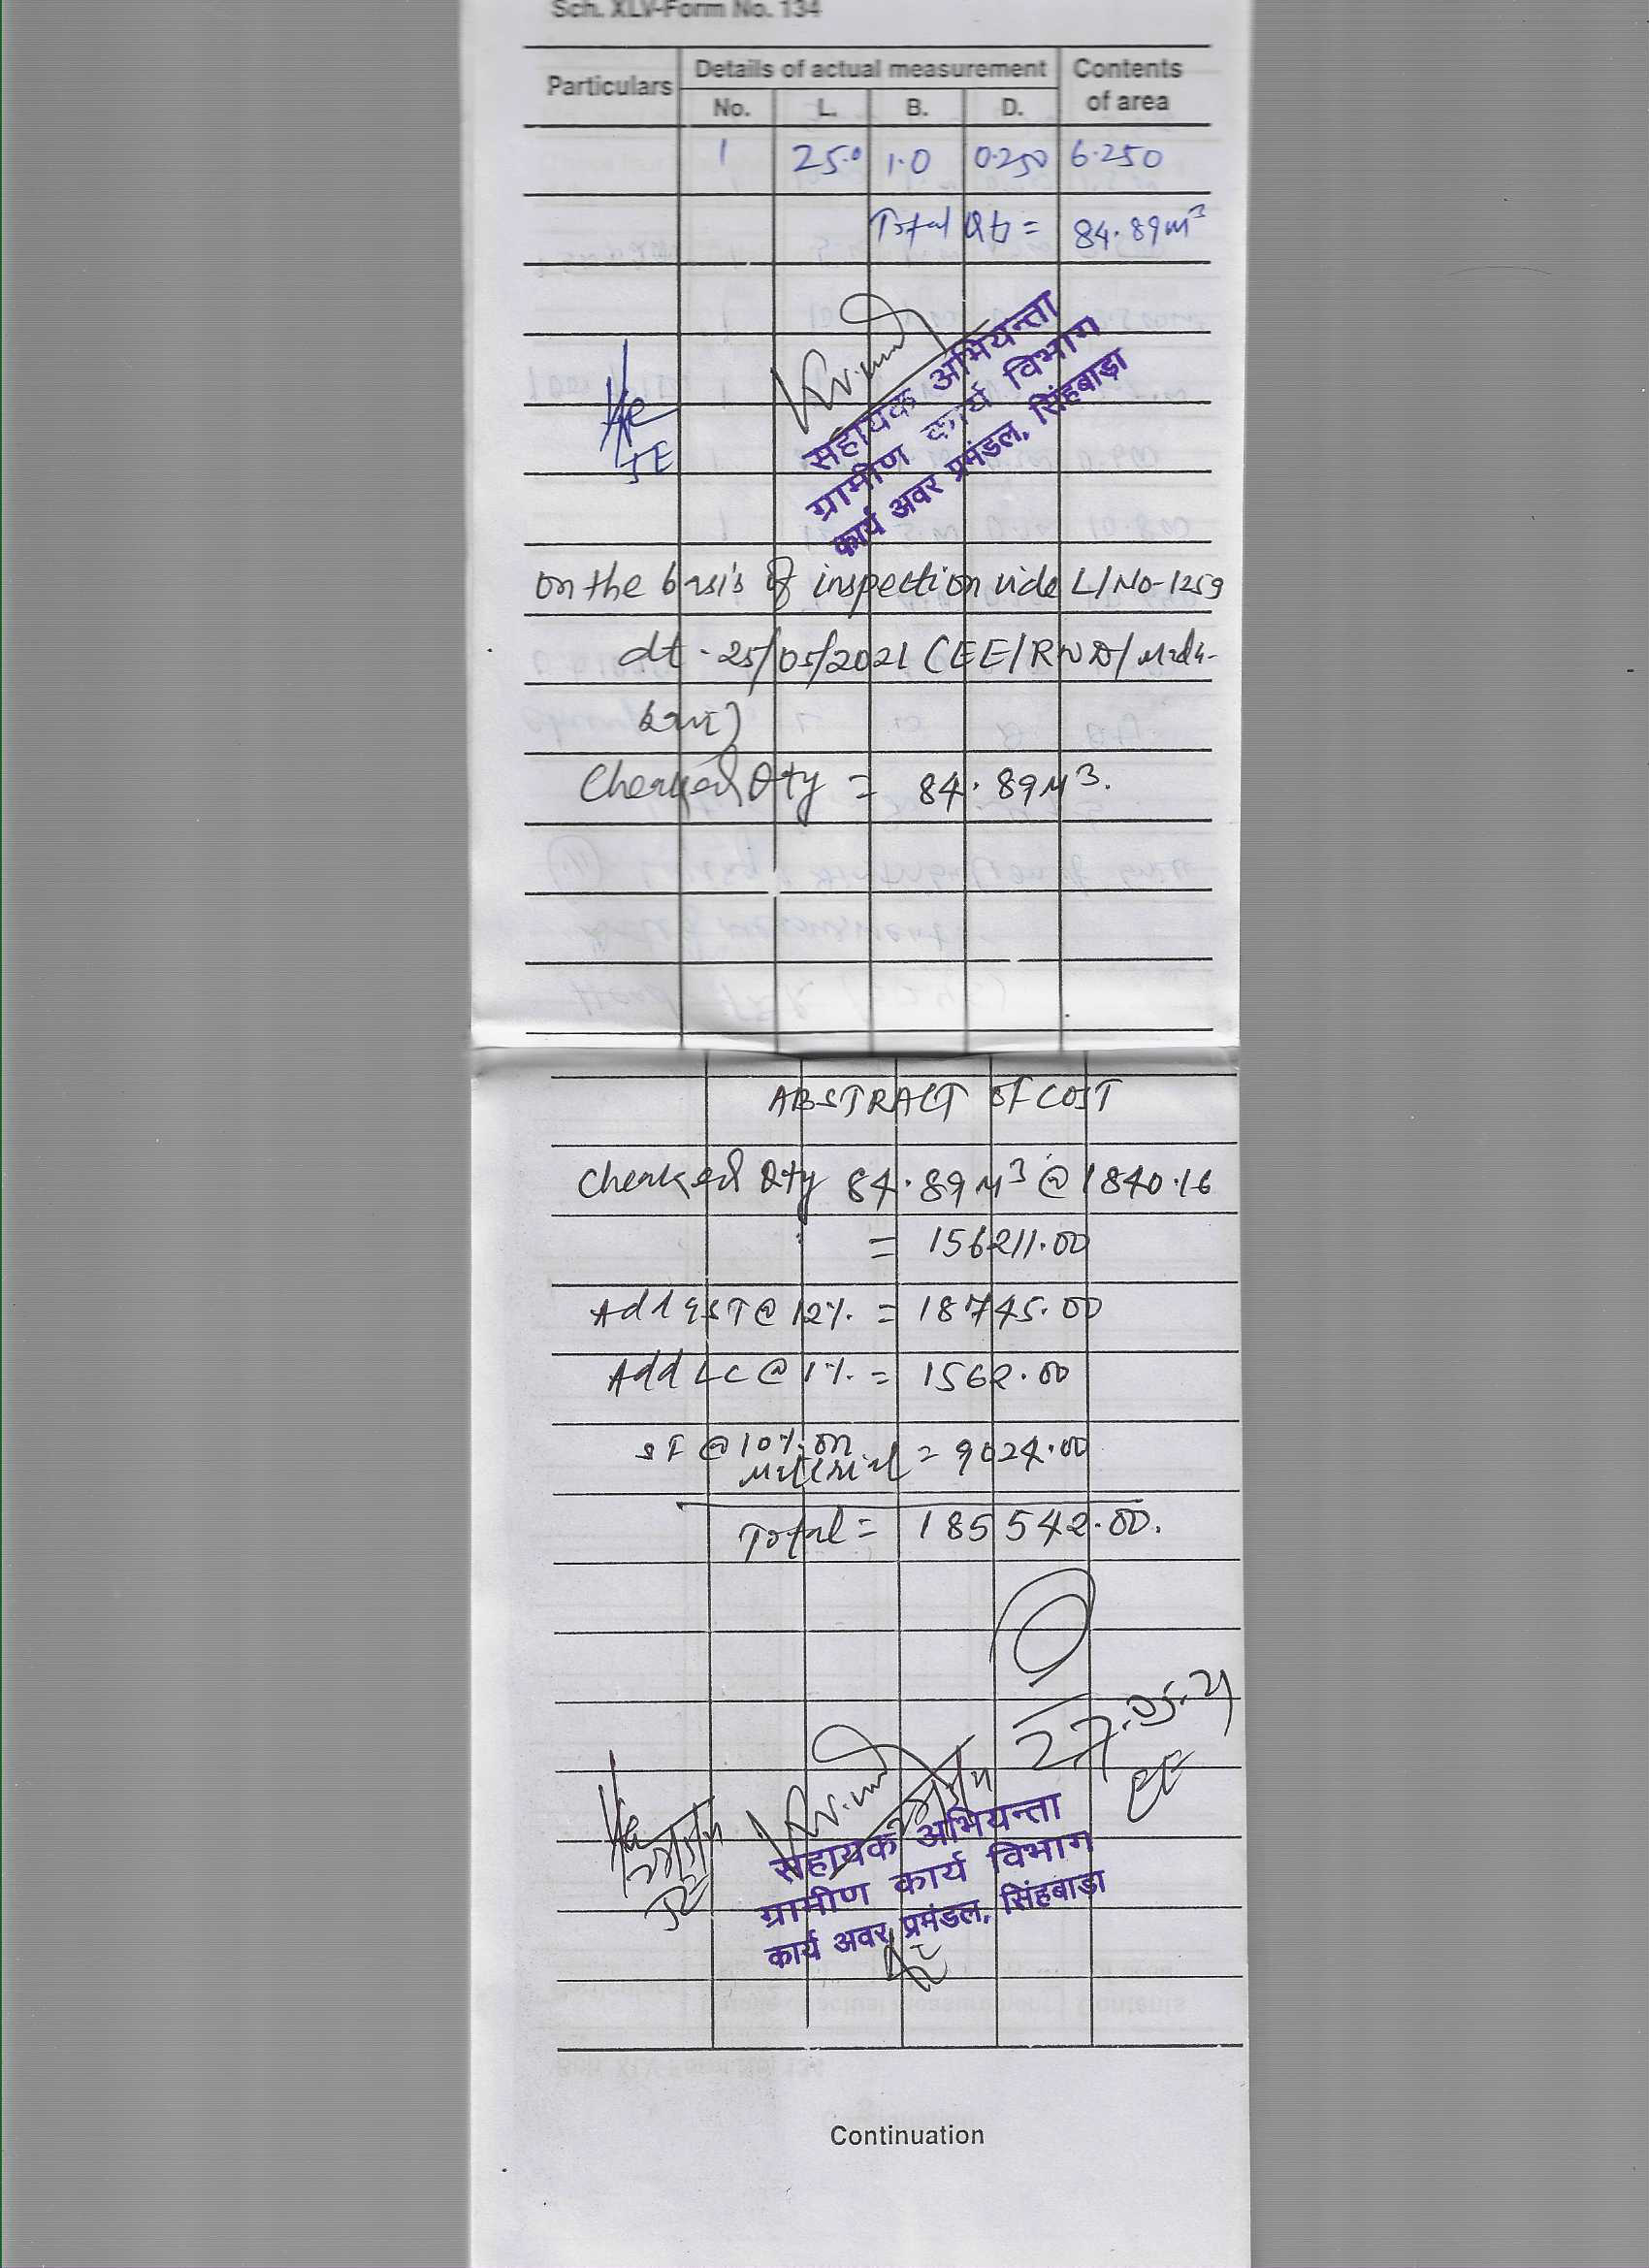 Sch. XLV-Form No. 134
Particulars Details of actual measurement Contents of area
No. L. B. D.
1 25.0 1.0 0.250 6.250
Total Qty = 84.89m³
JE
सहायक अभियन्ता
ग्रामीण कार्य विभाग
कार्य अवर प्रमंडल, सिंहबाड़ा
on the basis of inspection vide L/No-1259
dt - 25/05/2021 (EE/RWD/
Checked Qty = 84.89M³.
ABSTRACT OF COST
Checked Qty 84.89M³ @ 1840.16
= 156211.00
Add GST @ 12%. = 18745.00
Add LC @ 1%. = 1562.00
SF @ 10%. on
material = 9024.00
Total = 185542.00.
27.05.21
EE
JE
सहायक अभियन्ता
ग्रामीण कार्य विभाग
कार्य अवर प्रमंडल, सिंहबाड़ा
Continuation